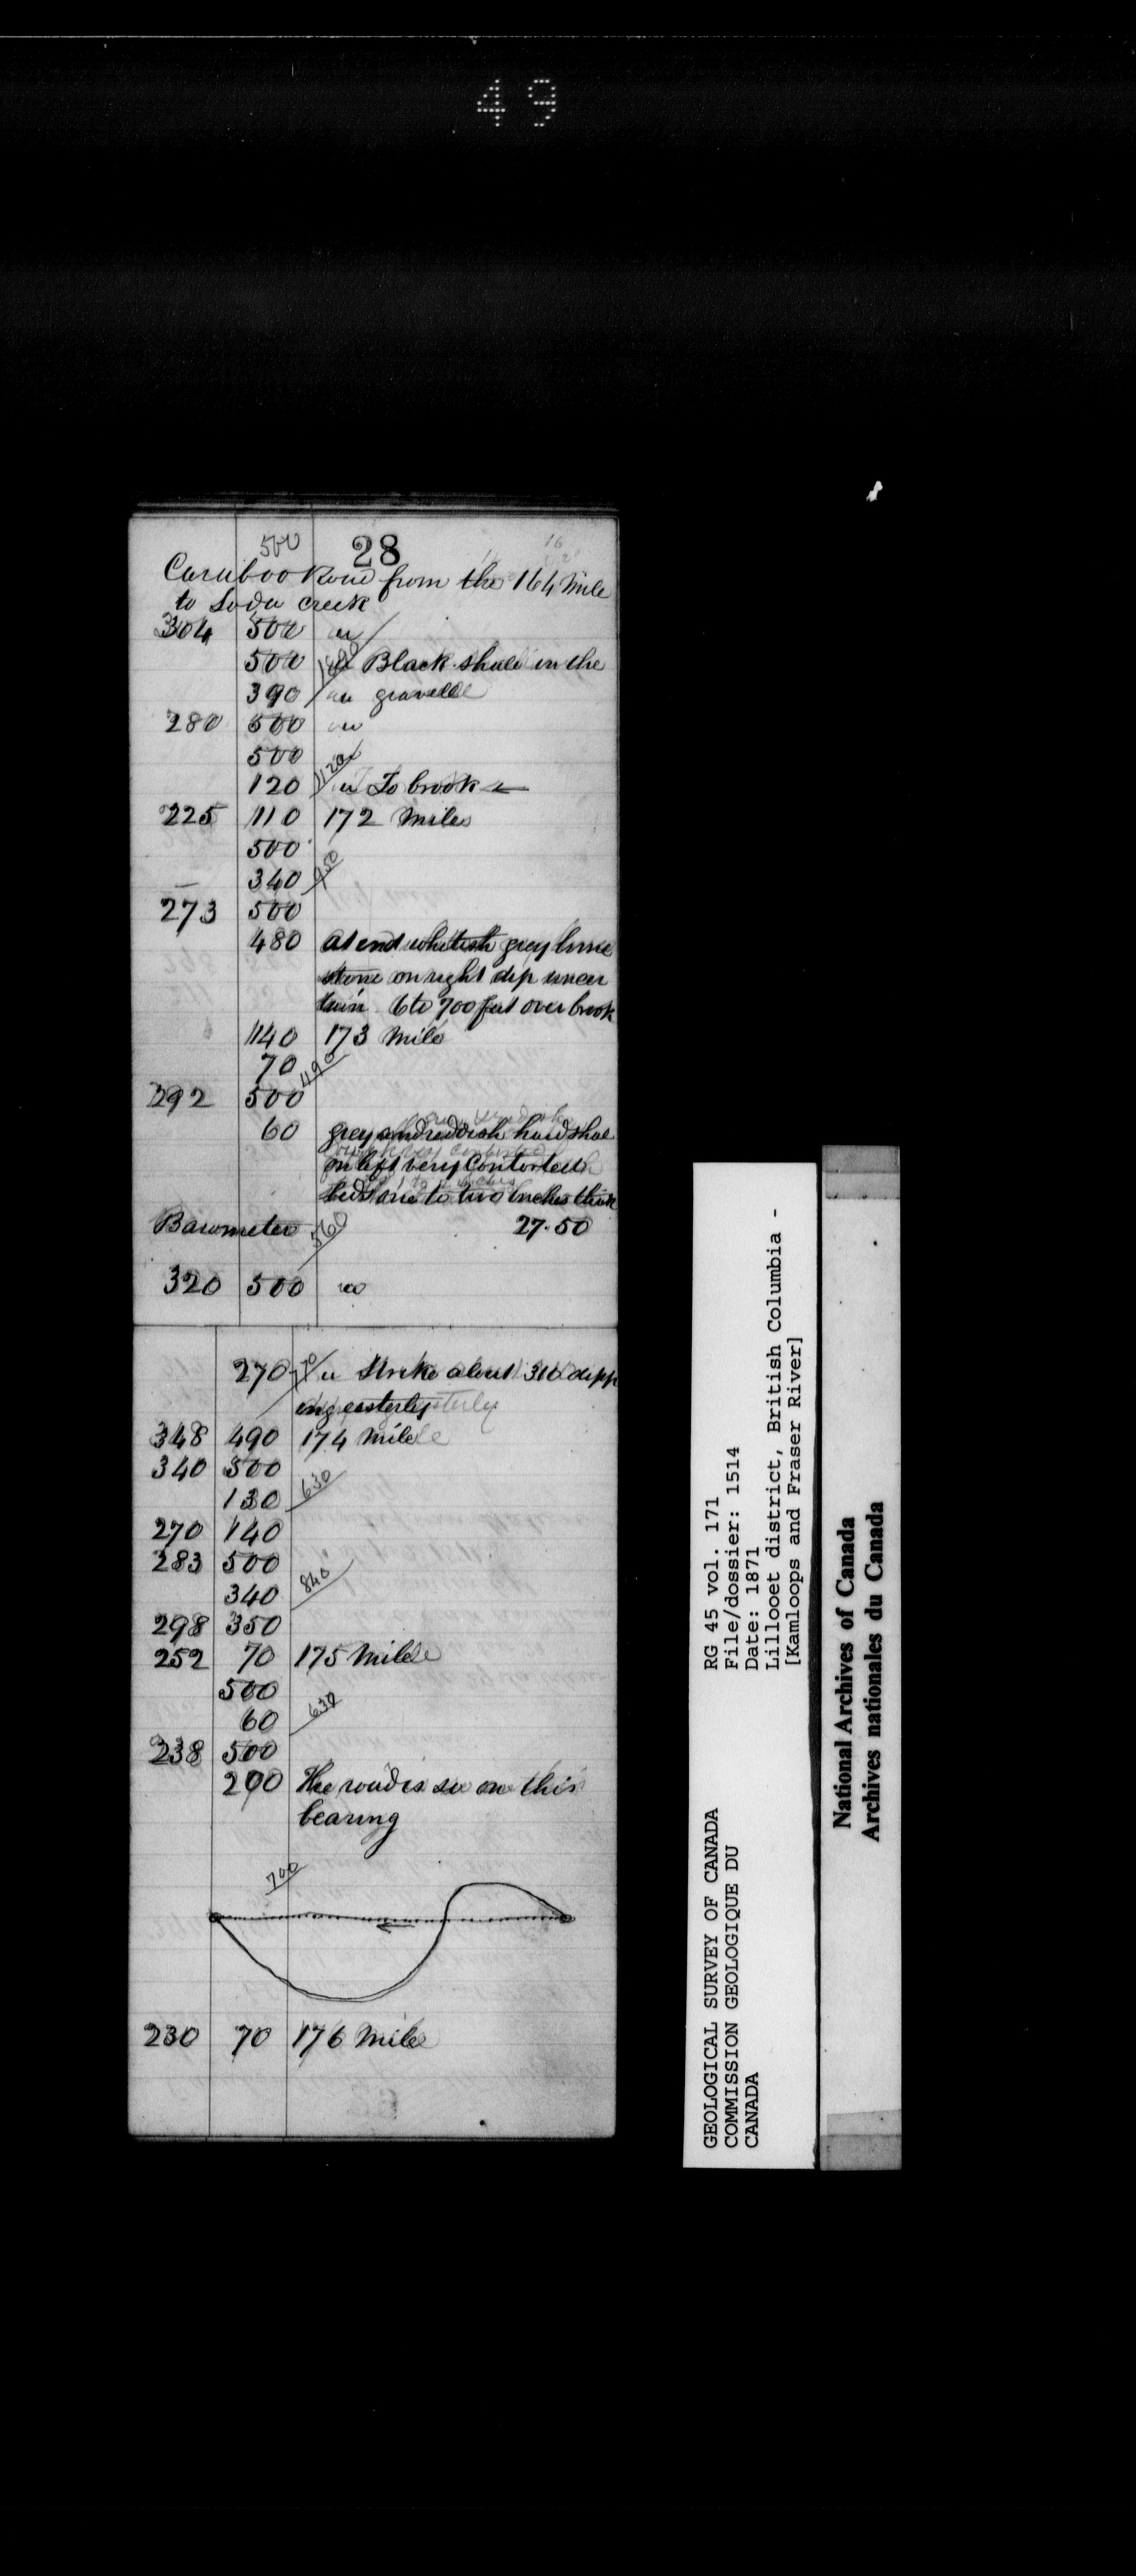 49
500 28
Cariboo Road from the 164 Mile
to Soda creek
304 500 "
500 " Black shale in the
390 " gravelle
280 500 "
500 1120
120 " To brook ←
225 110 172 Mile
500
340 950
273 500
480 at end whitish grey lime
stone on right dip uncer
tain 6 to 700 feet over brook
140 173 Mile
70 1190
292 500
60 grey and reddish hard shale
on left very Contorted
beds one to two inches thick
Barometer 560 27.50
320 500 "
270 770 " Strike about 316 dipp
ing easterly
348 490 174 Mile
340 500
130 630
270 140
283 500
340 840
298 350
252 70 175 Mile
500
60 630
238 500
200 The road is so on this
bearing
700
230 70 176 Mile
GEOLOGICAL SURVEY OF CANADA
COMMISSION GEOLOGIQUE DU
CANADA
RG 45 vol. 171
File/dossier: 1514
Date: 1871
Lillooet district, British Columbia -
[Kamloops and Fraser River]
National Archives of Canada
Archives nationales du Canada